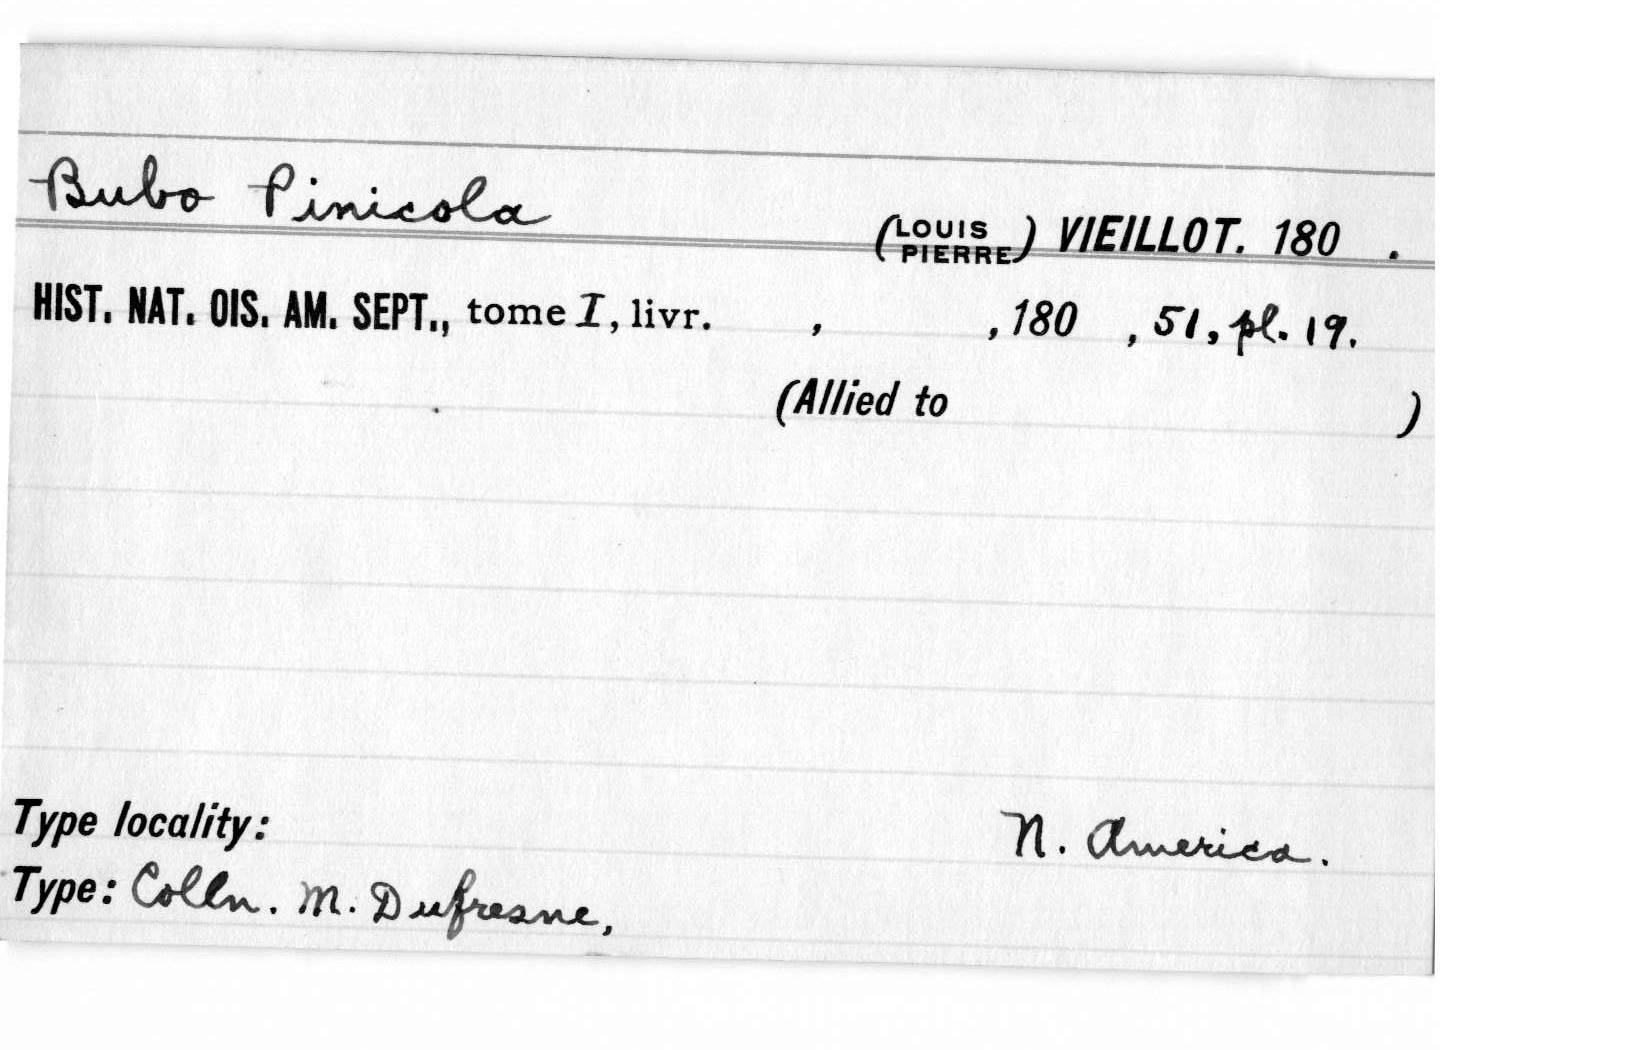 Bubo Pinicola (LOUIS PIERRE) VIEILLOT. 180 .
HIST. NAT. OIS. AM. SEPT., tome I, livr. , , 180 , 51, pl. 19.
(Allied to )
Type locality: N. America.
Type: Colln. M. Dufresne,